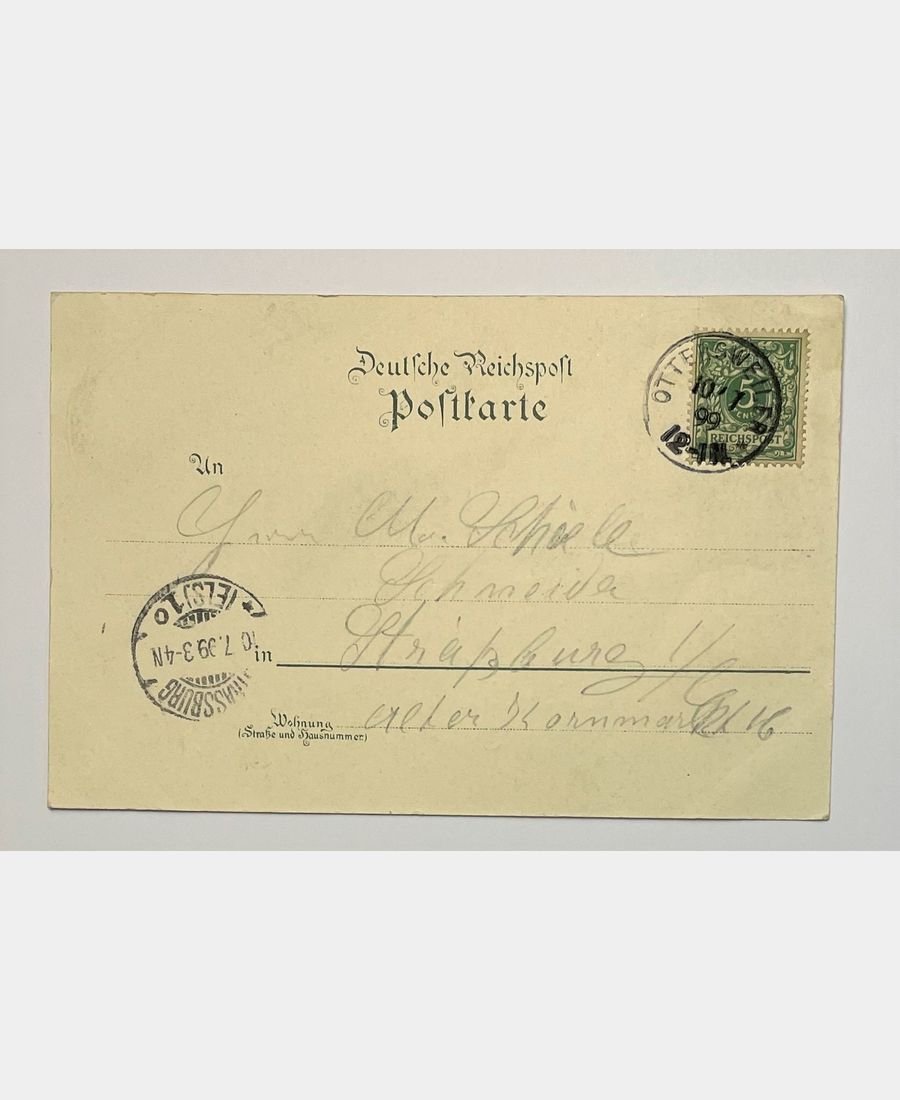 Deutsche Reichspost
Postkarte
OTTERSWEILER
10/7
99
12-1N.
5
REICHSPOST
An
Herrn M. Schiele
Schneider
in Straßburg i/E
Wohnung Alter Kornmarkt 16
(Straße und Hausnummer)
STRASSBURG
10.7.99.3-4N
(ELS) 10